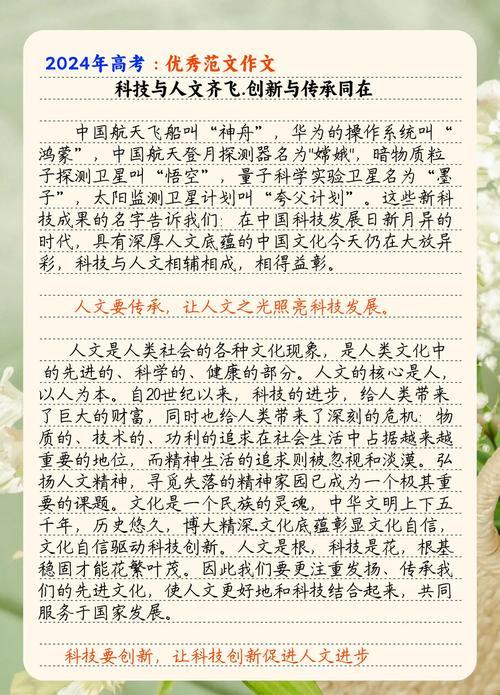 2024年高考：优秀范文作文
科技与人文齐飞.创新与传承同在
中国航天飞船叫“神舟”，华为的操作系统叫“
鸿蒙”，中国航天登月探测器名为"嫦娥"，暗物质粒
子探测卫星叫“悟空”，量子科学实验卫星名为“墨
子”，太阳监测卫星计划叫“夸父计划”。这些新科
技成果的名字告诉我们：在中国科技发展日新月异的
时代，具有深厚人文底蕴的中国文化今天仍在大放异
彩，科技与人文相辅相成，相得益彰。
人文要传承，让人文之光照亮科技发展。
人文是人类社会的各种文化现象，是人类文化中
的先进的、科学的、健康的部分。人文的核心是人，
以人为本。自20世纪以来，科技的进步，给人类带来
了巨大的财富，同时也给人类带来了深刻的危机：物
质的、技术的、功利的追求在社会生活中占据越来越
重要的地位，而精神生活的追求则被忽视和淡漠。弘
扬人文精神，寻觅失落的精神家园已成为一个极其重
要的课题。文化是一个民族的灵魂，中华文明上下五
千年，历史悠久，博大精深.文化底蕴彰显文化自信，
文化自信驱动科技创新。人文是根，科技是花，根基
稳固才能花繁叶茂。因此我们要更注重发扬、传承我
们的先进文化，使人文更好地和科技结合起来，共同
服务于国家发展。
科技要创新，让科技创新促进人文进步